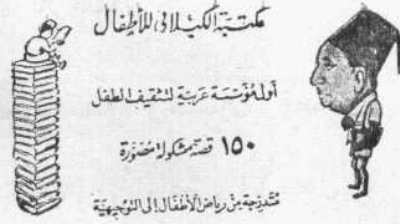 مكتبة الكيلاني للأطفال
أول مؤسسة عربية لتثقيف الطفل
١٥٠ قصة مشكولة مصورة
متدرجة من رياض الأطفال إلى التوجيهية